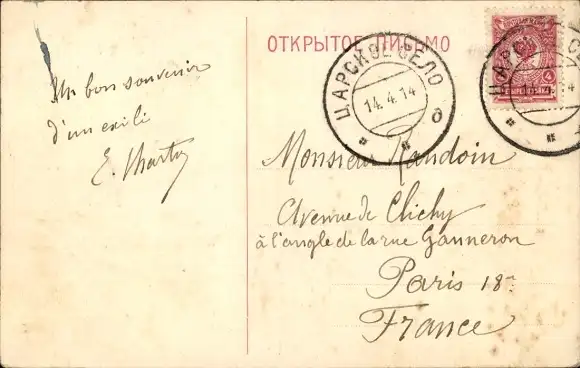 ОТКРЫТОЕ ПИСЬМО
ЦАРСКОЕ СЕЛО
14.4.14
б
Un bon souvenir
d'un exilé
E.
Monsieur
Avenue de Clichy
à l'angle de la rue Ganneron
Paris 18
France